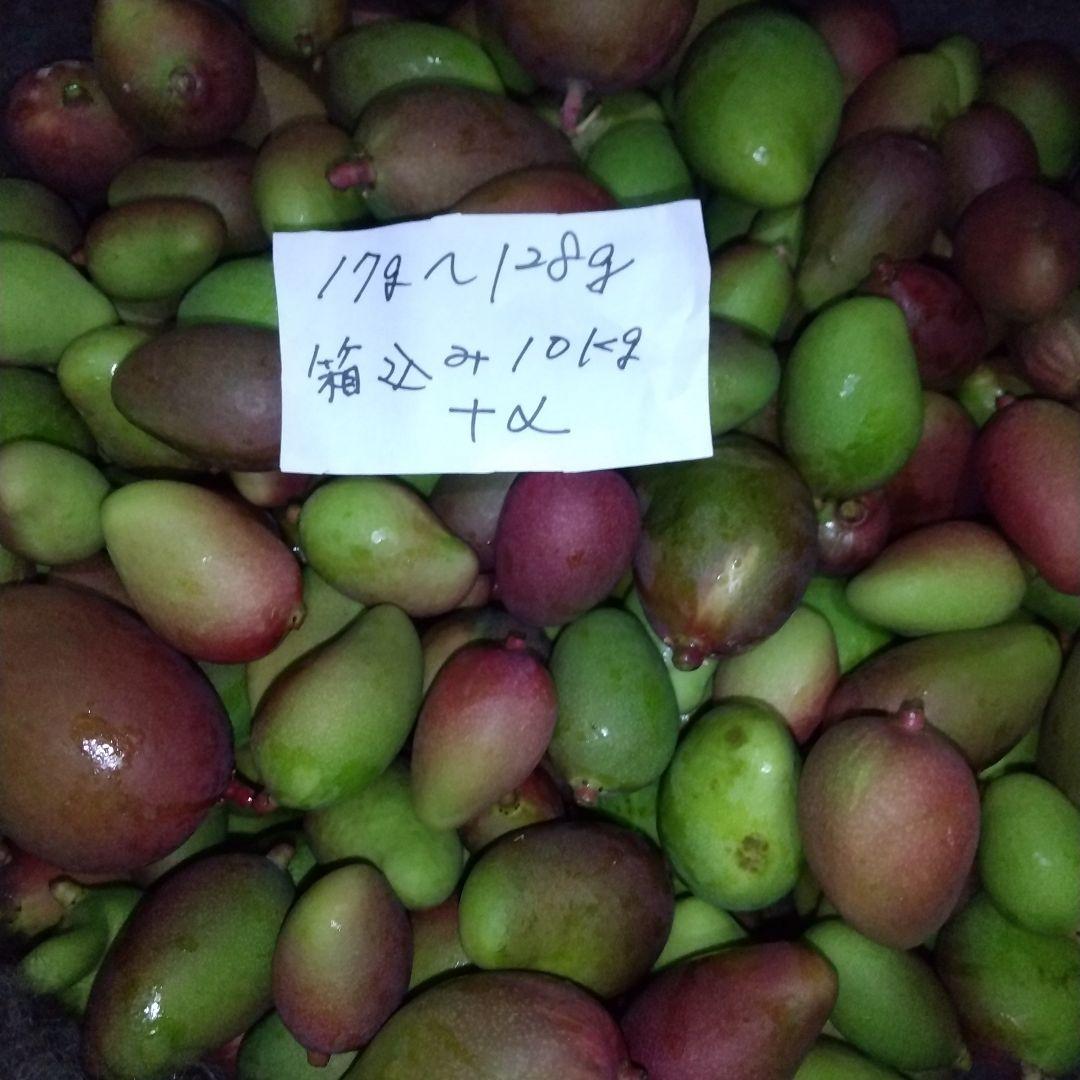 17g〜128g
箱込み10kg
+α